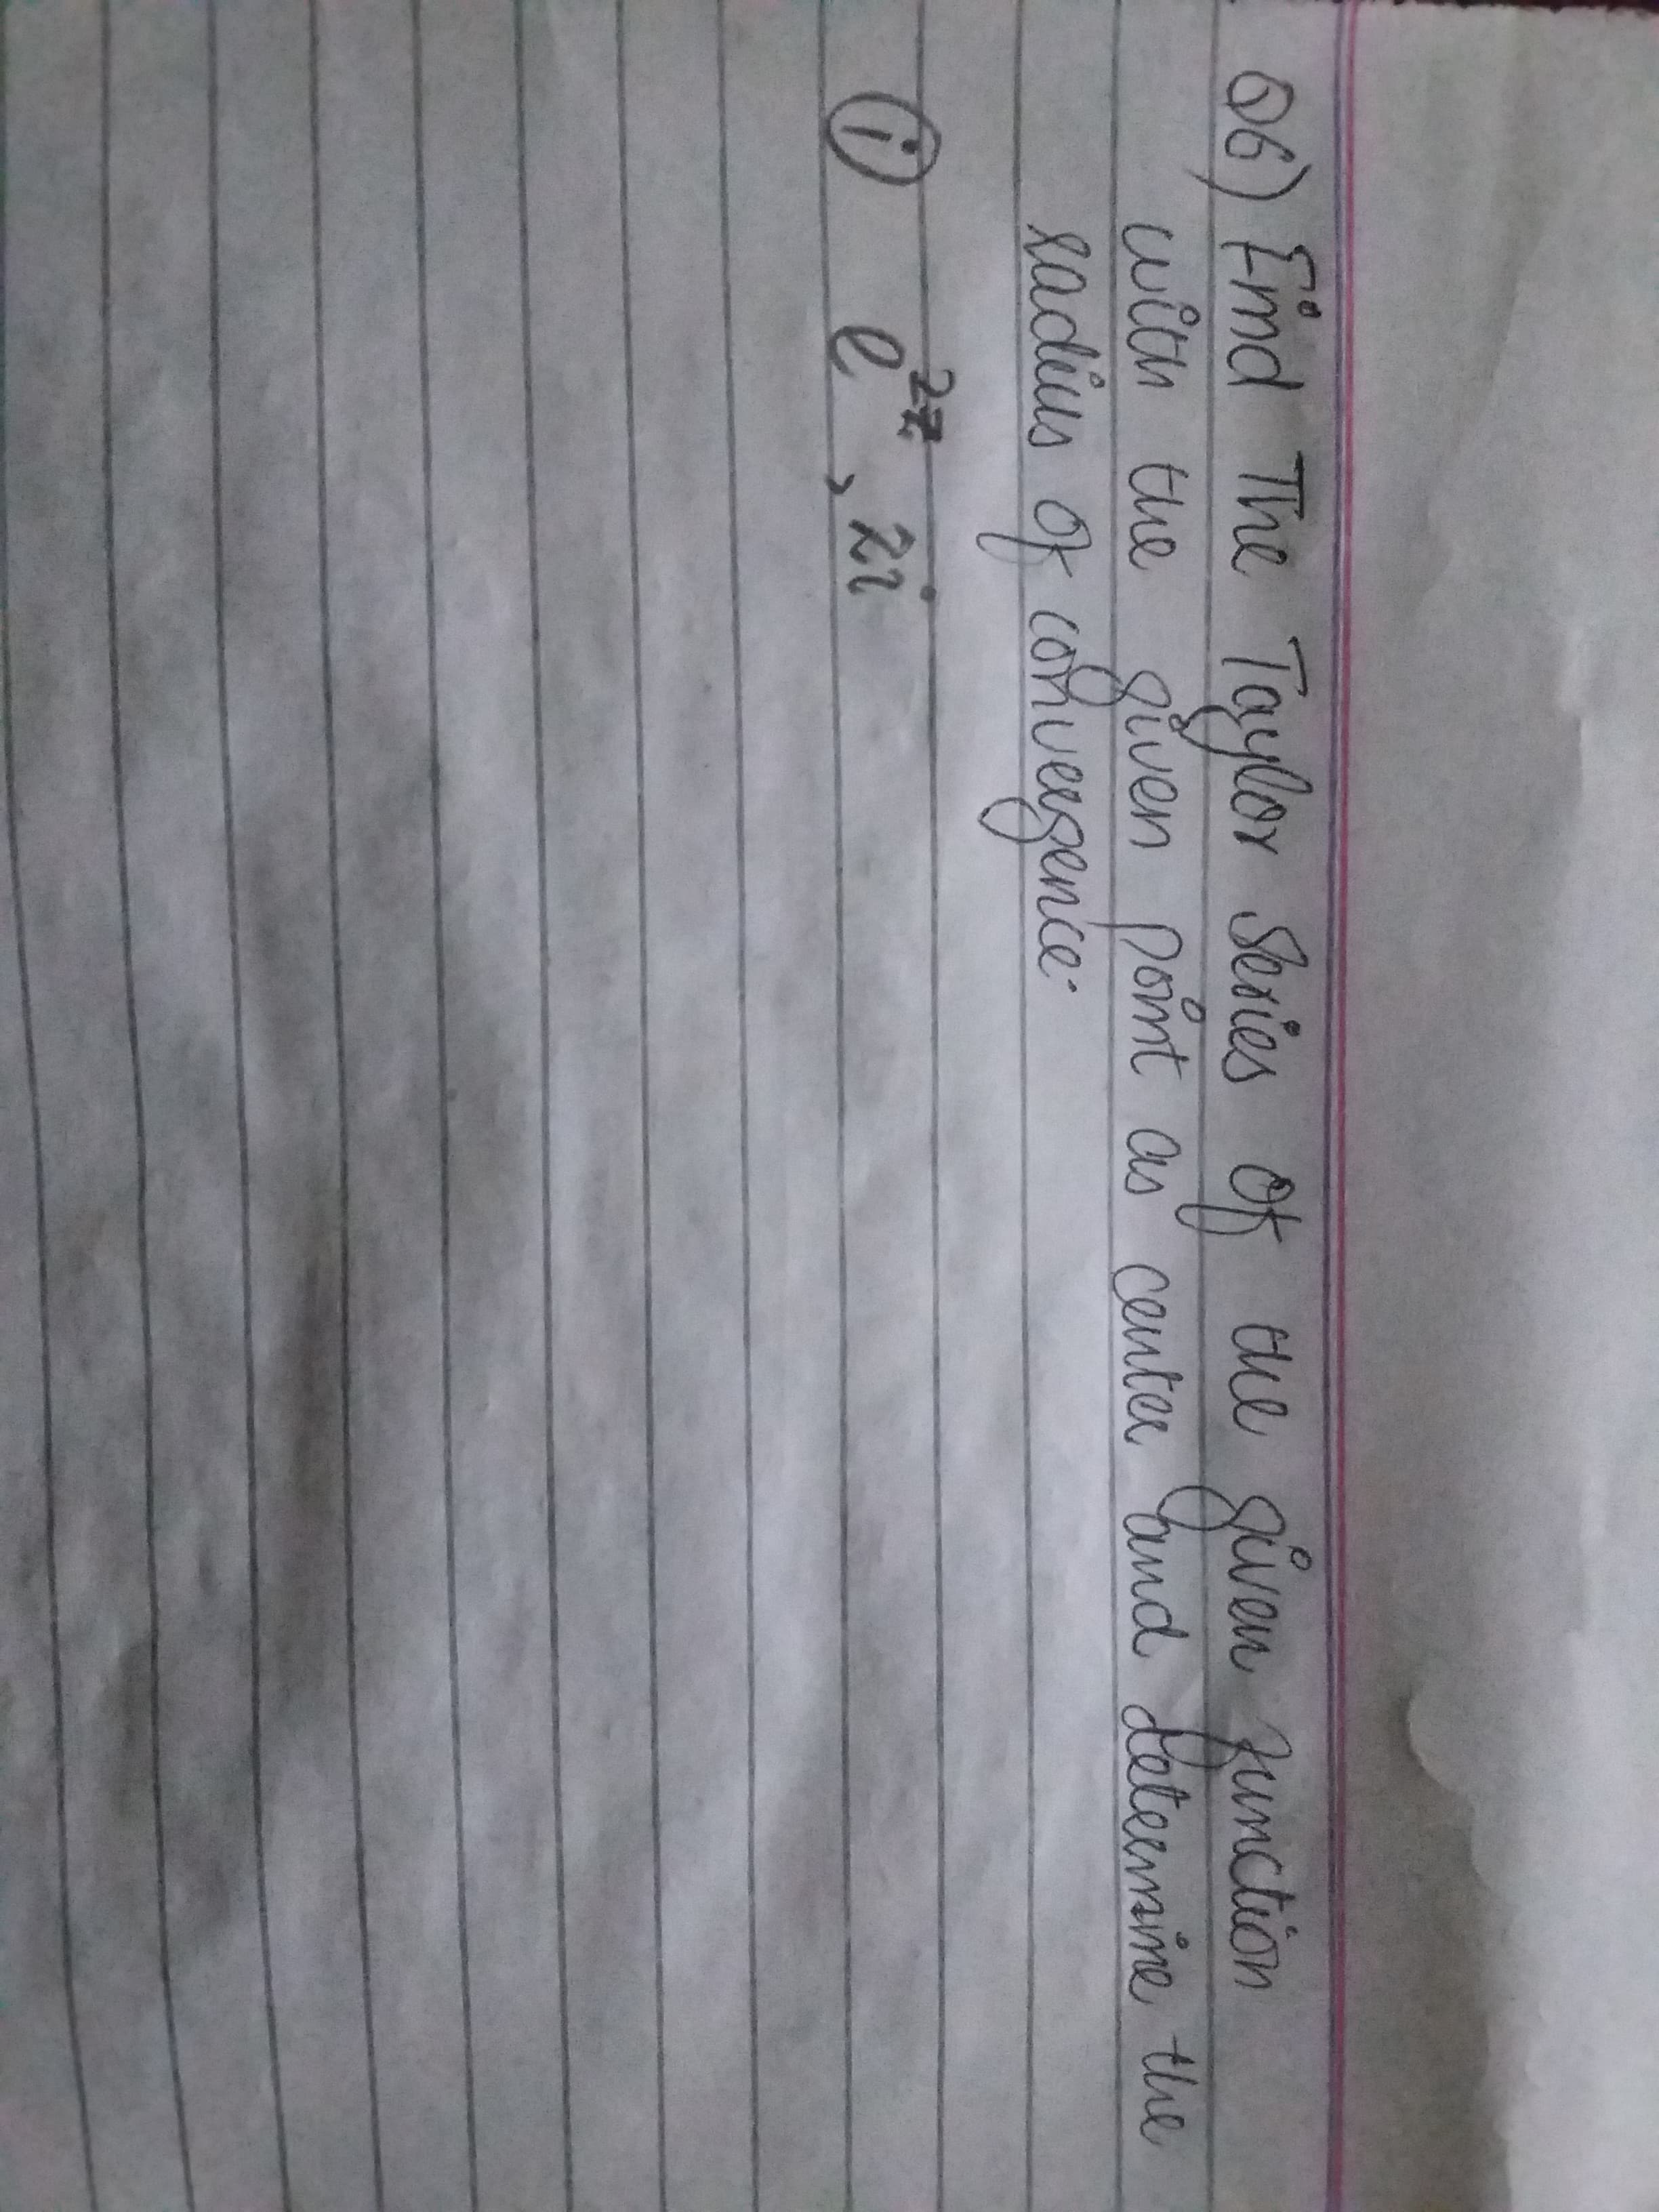 Q6) Find The Taylor Series Of the given function
with the given point as center and determine the
radius of convergence.
i e^2z, 2i